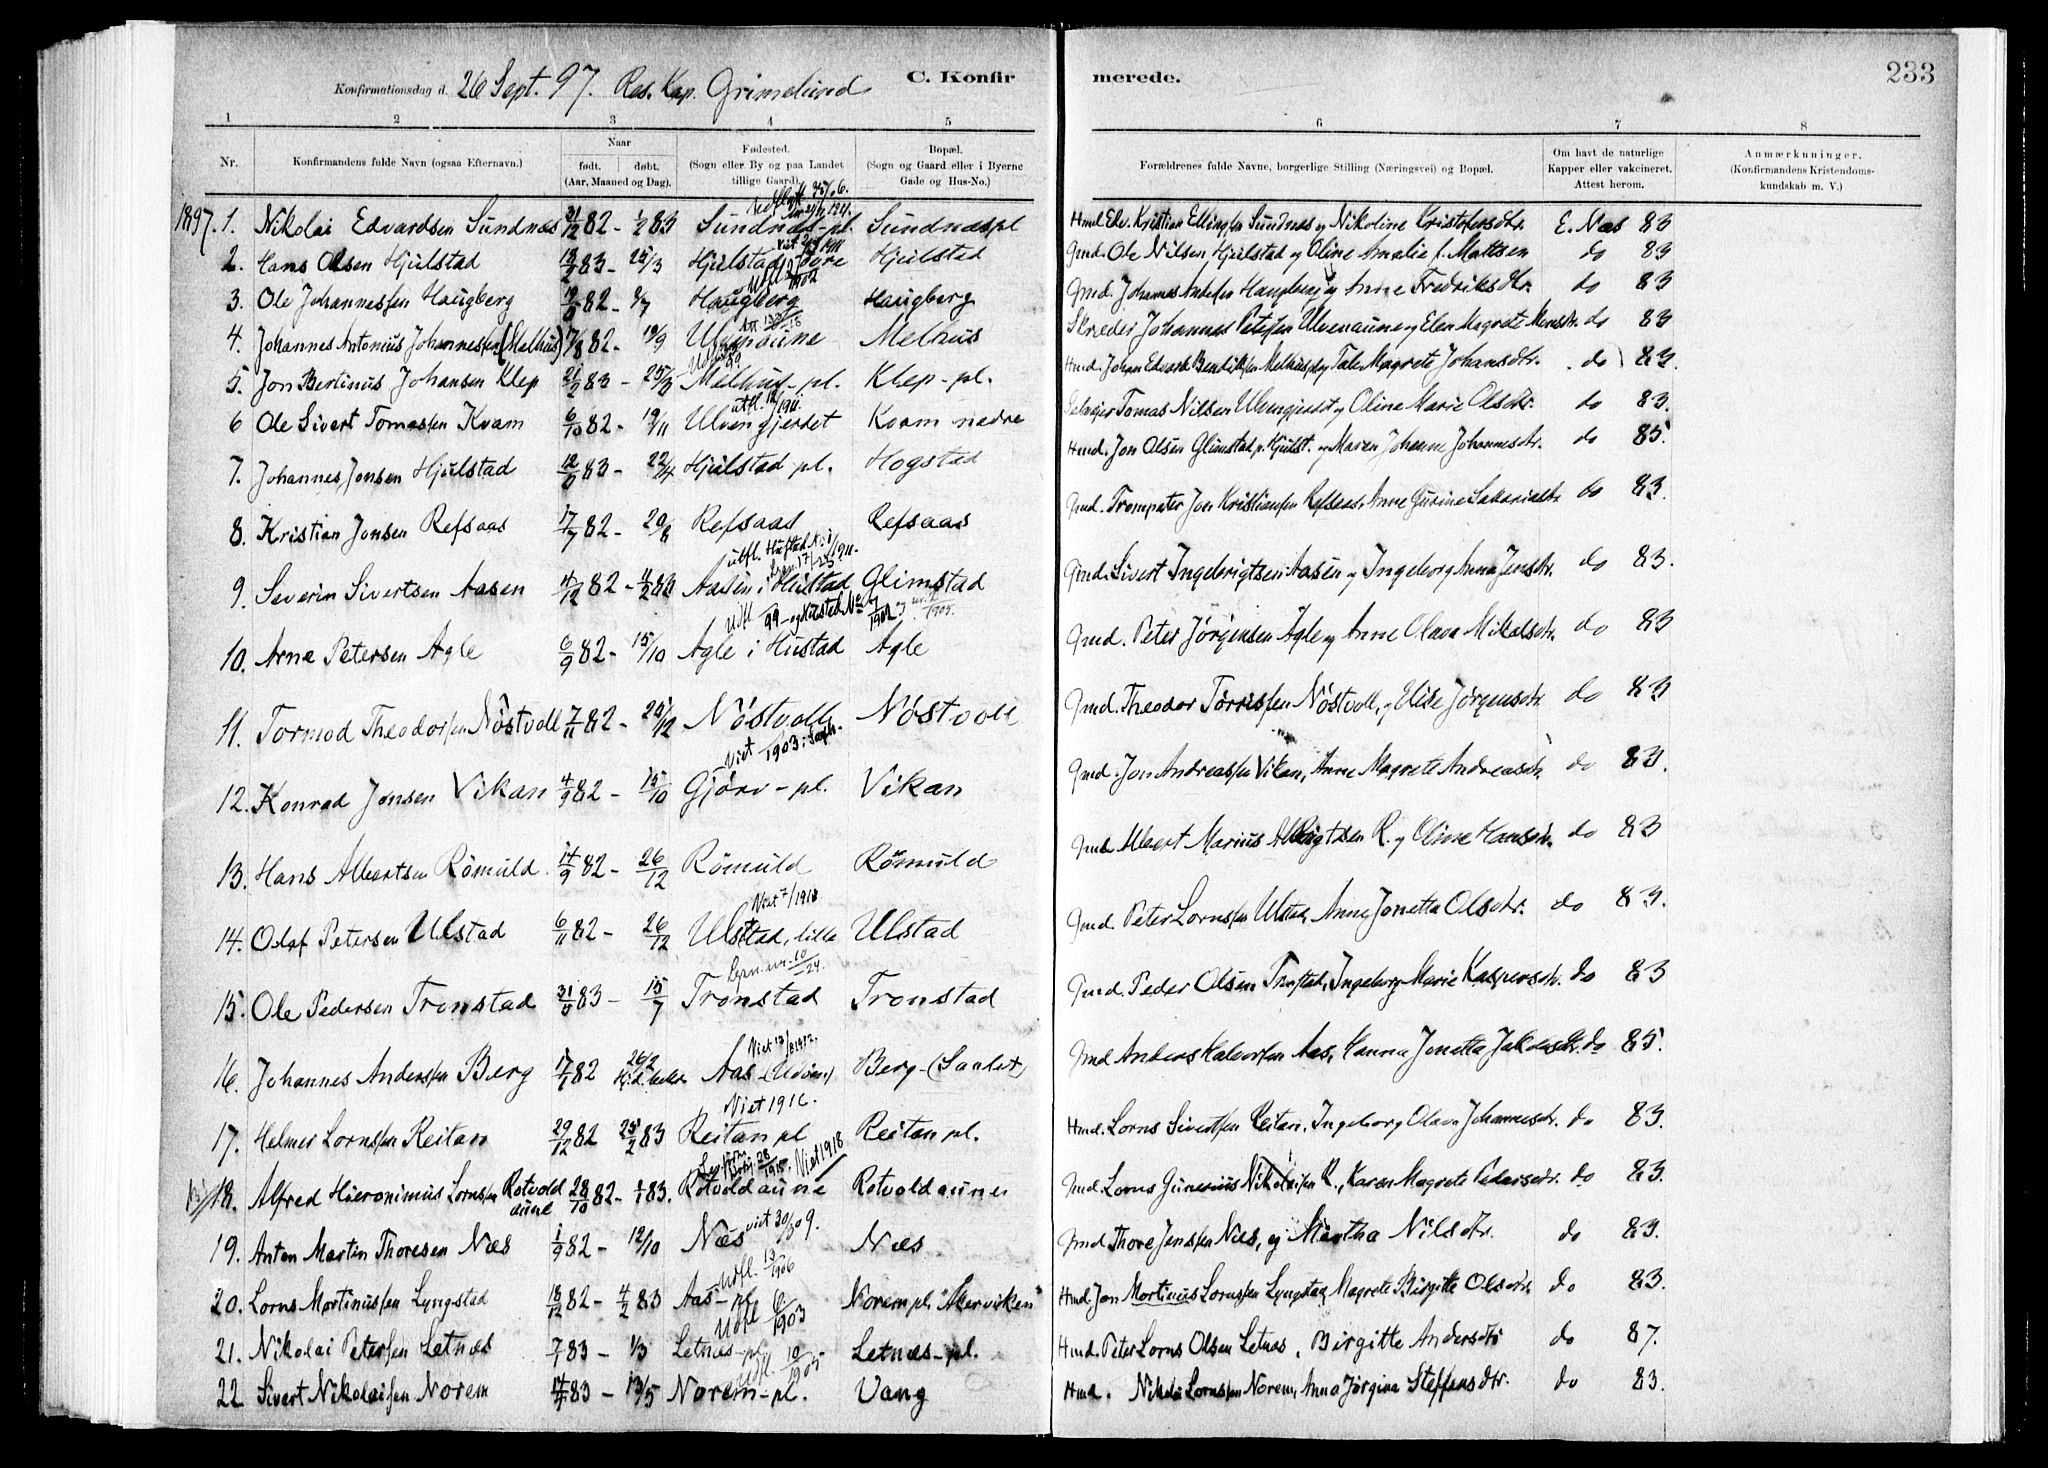 Konfirmationsdag d. 26 Sept. 97. Res. Kap. Grimelund C. Konfirmerede. 233
1 2 3 4 5 6 7 8
Nr. Konfirmandens fulde Navn (ogsaa Efternavn.) Naar født. døbt. (Aar, Maaned og Dag). Fødested. (Sogn eller By og paa Landet tillige Gaard). Bopæl. (Sogn og Gaard eller i Byerne Gade og Hus-No.) Forældrenes fulde Navne, borgerlige Stilling (Næringsvei) og Bopæl. Om havt de naturlige Kapper eller vakcineret. Attest herom. Anmærkninger. (Konfirmandens Kristendomskundskab m. V.)
1897. 1. Nikolai Edvardsen Sundnæs 31/12 82 - 1/2 83 Sundnæs-pl. Sundnæspl Hmd. Edv. Kristian Ellingsen Sundnæs og Nikoline Kristofersdtr. E. Næs 83
2. Hans Olsen Hjulstad 83 - 25/3 Hjulstad øvre Hjulstad Gmd. Ole Nilsen Hjulstad og Oline Amalie f. Mattsen do 83
3. Ole Johannessen Haugberg 82 - Haugberg Haugberg Gmd. Johannes Haugberg og Anne Fredriksdtr. do 83
4. Johannes Antonius Johannessen (Melhus) 17/8 82 - 10/9 Ulvenaune Melhus Skræder Johannes Petersen Ulvenaune og Elen Magrete do 83
5. Jon Bertinus Johansen Klep 21/2 83 - 25/3 Melhus-pl. Klep-pl. Hmd. Johan Edvard Bendiksen Melhuspl og Magrete Johansdtr. do 83.
6 Ole Sivert Tomassen Kvam 6/10 82 - 19/11 Ulvengjerdet Kvam nedre Tomas Nilsen Ulvengjerdet og Oline Marie Olsdtr. do 83.
7. Johannes Jonsen Hjulstad 83 - 22/4 Hjulstad pl. Hogstad Hmd. Jon Olsen Glimstad og Maren Johanne Johannesdtr. do 85.
8. Kristian Jonsen Refsaas 17/7 82 - 20/8 Refsaas Refsaas Gmd. Trompeter Jon Kristiansen Refsaas, Anne Gurine Sakariasdtr. do 83.
9. Severin Sivertsen Aasen 4/12 82 - 83 Aasen i Hustad Glimstad Gmd. Sivert Ingebrigtsen Aasen og Ingeborg Anna Jensdtr. do 83.
10. Arne Petersen Agle 6/9 82 - 15/10 Agle i Hustad Agle Gmd. Peter Jørgensen Agle og Anne Olava Mikalsdtr. do 83
11. Tormod Theodorsen Nøstvoll 7/11 82 - 26/12 Nøstvoll Nøstvoll Gmd. Theodor Tørrissen Nøstvoll, og Elise Jørgensdtr. do 83
12. Konrad Jonsen Vikan 4/9 82 - 15/10 Gjørv - pl. Vikan Gmd. Jon Andreassen Vikan, Anne Magrete Andreasdtr do 83.
13. Hans Albertsen Römuld 14/9 82 - 26/12 Römuld Römuld Gmd. Albert Marius R. og Oline Hansdtr. do 83
14. Olaf Petersen Ulstad 6/11 82 - 26/12 Ulstad, lille Ulstad Gmd. Peter Lornssen Ulstad, Anne Jonetta Olsdtr. do 83.
15. Ole Pedersen Tronstad 83 - 15/7 Tronstad Tronstad Gmd. Peder Olsen Tronstad, Ingeborg Marie Kaspersdtr. do 83
16. Johannes Anderssen Berg 82 26/2 Aas Berg - (Sandet) Gmd Anders Halvorsen Aas, Hanna Jonetta Jakobsdtr. do 85.
Viet 1916.
17. Helmer Lornssen Reitan 29/12 82 25/2 83 Reitan pl Reitan pl. Hmd. Lorns Sivertsen Reitan, Ingeborg Olava Johannesdtr. do 83.
Viet 1918
18. Alfred Hieronimus Lornssen Rotvold aune 28/10 82 - 83. Rotvoldaune Rotvoldaune Gmd. Lorns Gunerius Nikolaisen R., Karen Magrete Pedersdtr. do 83.
19. Anton Martin Thoresen Næs 1/9 82 - 12/10 Næs Næs Gmd. Thore Jenssen Næs, og Martha Nilsdtr. do 83.
20. Lorns Martinussen Lyngstad 18/12 82 - 4/2 83 Aas - pl. Norempl. "Akervikken" Hmd. Jon Mortinus Lornssen Lyngstad, Magrete Birgitte Olsdtr. do 83.
21. Nikolai Petersen Letnæs 83 - 1/3 Letnæs-pl Letnæs-pl. Hmd. Peter Lorns Olsen Letnæs, Birgitte Andersdtr do 87.
22 Sivert Nikolaisen Norem 83 - 13/5 Norem-pl. Vang Hmd. Nikolai Lornssen Norem, Anna Jørgina Steffensdtr. do 83.